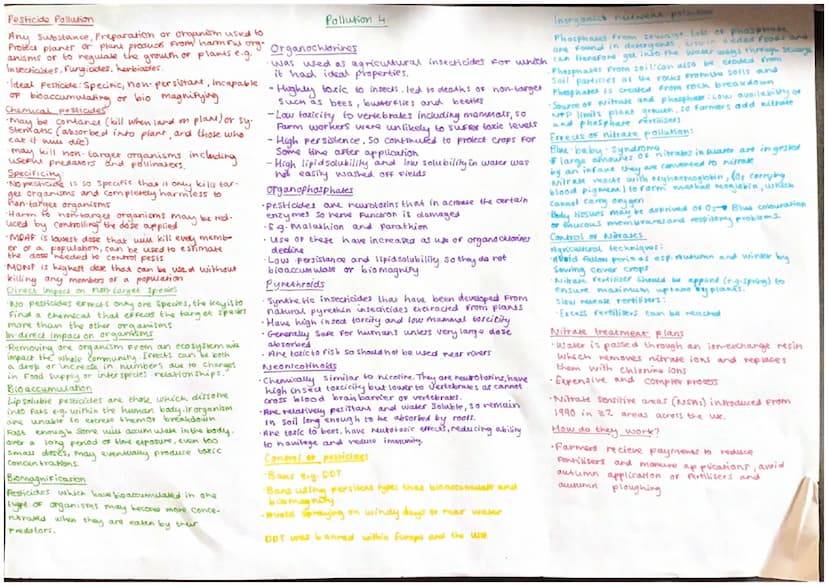 Pesticide Pollution
Any Substance, Preparation or organism used to
Protect plants or plant products from harmful org-
anisms or to regulate the growth or plants e.g.
Insecticides, Fungicides, herbicides.
· Ideal Pesticide: Specific, Non-persistant, Incapable
or bioaccumulating or bio magnifying
Chemical pesticides
· May be contance (kill when land on plant) or sy-
stematic (absorbed into plant, and those who
eat it will die)
· may kill non-target organisms including
useful predators and pollinaters.
Specificity:
· No pesticide is so specific that it only kills tar-
get organisms and completely harmless to
non-target organisms
· Harm to non-target organisms may be red-
uced by controlling the dose applied
· is lowest dose that will kill every memb-
er or a population, can be used to estimate
the dose needed to control pests
MDNF is highest dose that can be used without
killing any members of a population
Direct impact on non-target species
· No pesticides effects only one species, the key is to
Find a chemical that effects the target species
more than the other organisms
In direct impact on organisms
· Removing one organism from an ecosystem will
impact the whole community. Effects can be both
a drop or increase in numbers due to changes
in food supply or inter species relationships.
Bioaccumulation
Lipsoluble pesticides are those which dissolve
into fats e.g. within the human body. If organism
are unable to excrete them or breakdown
fast enough some will accumulate in the body.
over a long period of time exposure, even too
small doses, may eventually produce toxic
concentrations.
Biomagnification
Pesticides which have bioaccumulated in one
type of organisms may become more conce-
ntrated when they are eaten by their
predators.
Pollution 4
Organochlorines
· Was used as agricultural insecticides for which
it had ideal properties.
- Highly toxic to insects. led to deaths of non-target
such as bees, butterflies and beetles
- Low toxicity to vertebrates including mammals, so
Farm workers were unlikely to suffer toxic levels
- High persistence, so continued to protect crops for
Some time after application
- High lipid solubility and low solubility in water was
not easily washed off fields
Organophosphates
· Pesticides are neurotoxins that in active the certain
enzymes so nerve function is damaged
· E.g. Malathion and parathion
· Use of these have increased as use of organochlorines
decline
· Low persistance and lipid solubility so they do not
bioaccumulate or biomagnify
Pyrethroids
· Synthetic insecticides that have been developed from
natural pyrethin insecticides extracted from plants
· Have high insect toxicity and low mammal toxicity
· Generally safe for humans unless very large dose
absorbed
· Are toxic to fish so should not be used near rivers
Neonicotinoids
· Chemically similar to nicotine. They are neurotoxins, have
high insect toxicity but lower to vertebrates as cannot
cross blood brain barrier or vertebrates.
· Are relatively persistant and water soluble, so remain
in soil long enough to be absorbed by roots.
· Are toxic to bees, have neurotoxic effects, reducing ability
to navigate and reduce immunity.
Control of pesticides
· Bans e.g. DDT
· Bans using persistent types that bioaccumulate and
biomagnify
· Avoid spraying on windy days or near water
DDT was banned within Europe and the USA
Inorganic nutrient pollution
· Phosphates from sewage. Lots of phosphate
are found in detergents, and foods and
can therefore get into the water ways through sewage
· Phosphates from soil can also be eroded from
Soil particles as the rocks from the soils and
Phosphates is created from rock breakdown
· Source of nitrate and phosphate: Low availability of
N+P limits plant growth, so farmers add nitrate
and phosphate fertilisers
Effects of nitrate pollution:
Blue-baby-Syndrome
If large amounts of nitrates in water are ingested
by an infant they are converted to nitrate
Nitrate react with oxyhaemoglobin, (O₂ carrying
blood pigment) to form methae moglobin, which
cannot carry oxygen
Body tissues may be deprived of O₂ → Blue colouration
of mucous membranes and respiratory problems.
Control of Nitrates
Agricultural techniques:
· Avoid fallow periods esp. Autumn and winter by
Sowing cover crops
· Nitrate fertiliser should be applied (e.g. spring) to
Ensure maximum uptake by plants.
Slow release fertilisers:
· Excess fertilisers can be reached
Nitrate treatment plans
· Water is passed through an ion-exchange resin
which removes nitrate ions and replaces
them with chlorine ions
· Expensive and complex process
· Nitrate sensitive areas (NSA's) introduced from
1990 in 22 areas across the UK.
How do they work?
· Farmers recieve payments to reduce
Fertilisers and manure applications, avoid
autumn application of fertilisers and
autumn ploughing